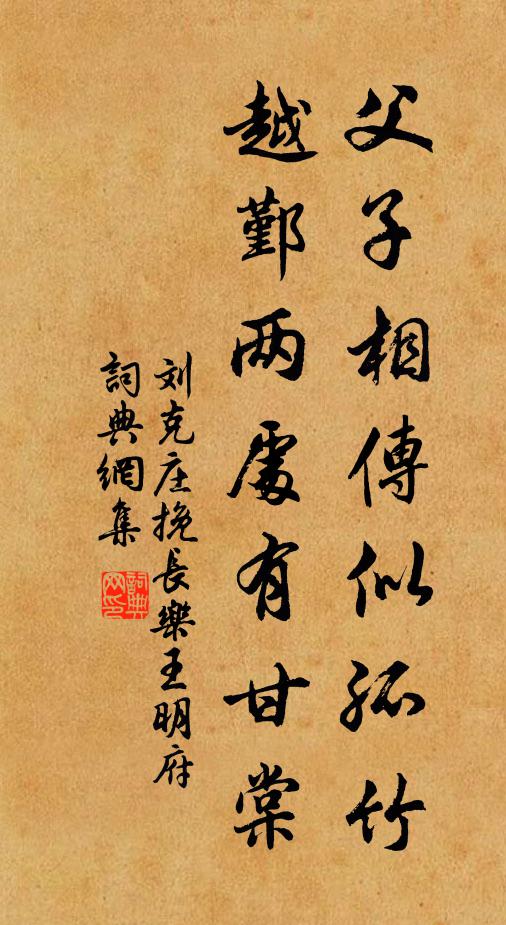 父子相傳似孤竹
越鄞两處有甘棠
刘克庄挽长樂王明府
詞典網集
詞典网印